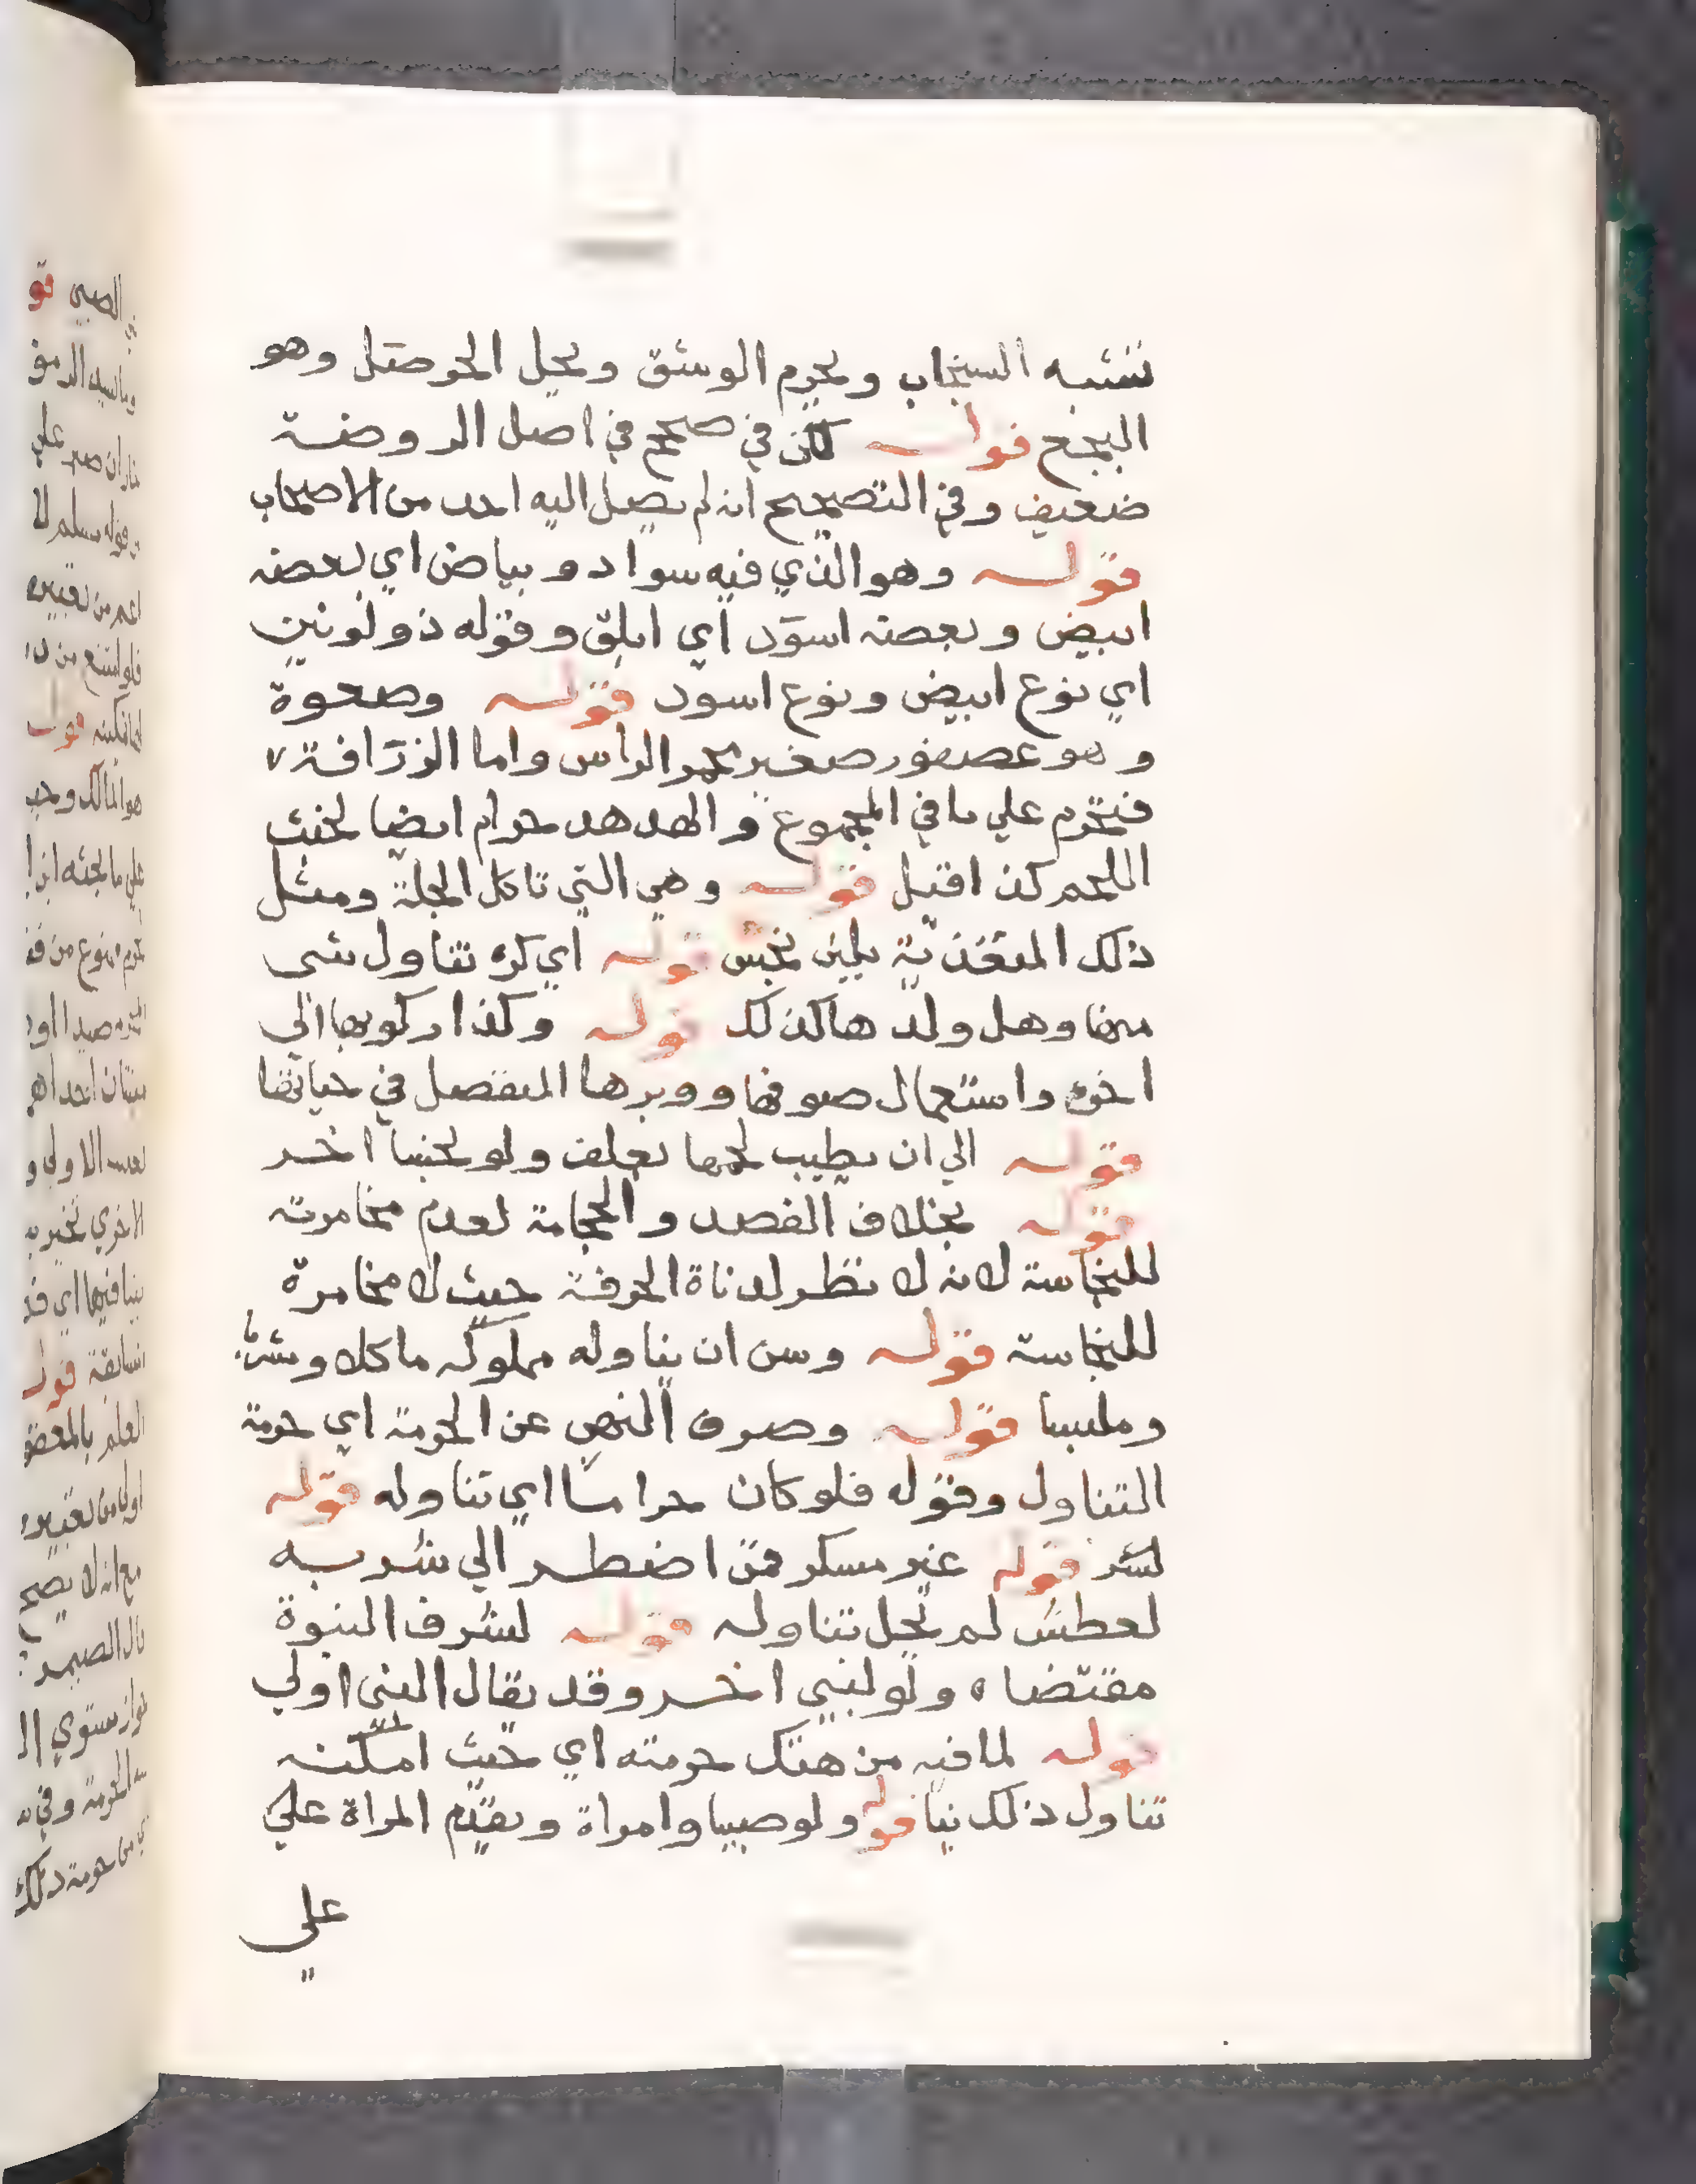 تشبه السنجاب ويحرم الوشق ويحل الحوصل وهو
البجع قوله لكن في صحح في اصل الروضة
ضعيف وفي التصحيح انه لم يصل اليه احد من الاصحاب
قوله وهو الذي فيه سواد وبياض اي بعضه
ابيض وبعضه اسود اي ابلق وقوله ذو لونين
اي نوع ابيض ونوع اسود قوله وصعوة
وهو عصفور صغير محمر الراس واما الزرافة
فتحرم علي ما في المجموع والهدهد حرام ايضا لخبث
اللحم كذا قيل قوله وهي التي تاكل الجلة ومثل
ذلك المتغذية بلبن نجس قوله اي كره تناول شي
منها وهل ولدها كذلك قوله وكذا ركوبها الي
اخره واستعمال صوفها ووبرها المنفصل في حياتها
قوله الي ان يطيب لحمها بعلف ولو نجسا اخر
قوله بخلاف الفصد والحجامة لعدم مخامرته
للنجاسة لانه لا نظر لدناة الحرفة حيث لا مخامرة
للنجاسة قوله وسن ان يناوله مملوكه ماكلا ومشربا
وملبسا قوله وصرف النص عن الحرمة اي حرمة
التناول وقوله فلو كان حراما اي تناوله قوله
لشر قوله غير مسكر فمن اضطر الي شربه
لعطش لم يحل تناوله قوله لشرف النبوة
مقتضاه ولو لنبي اخر وقد يقال النبي اولي
قوله لما فيه من هتك حرمته اي حيث امكنه
تناول ذلك نيا قوله ولو صبيا وامراة ويقدم المراة علي
علي